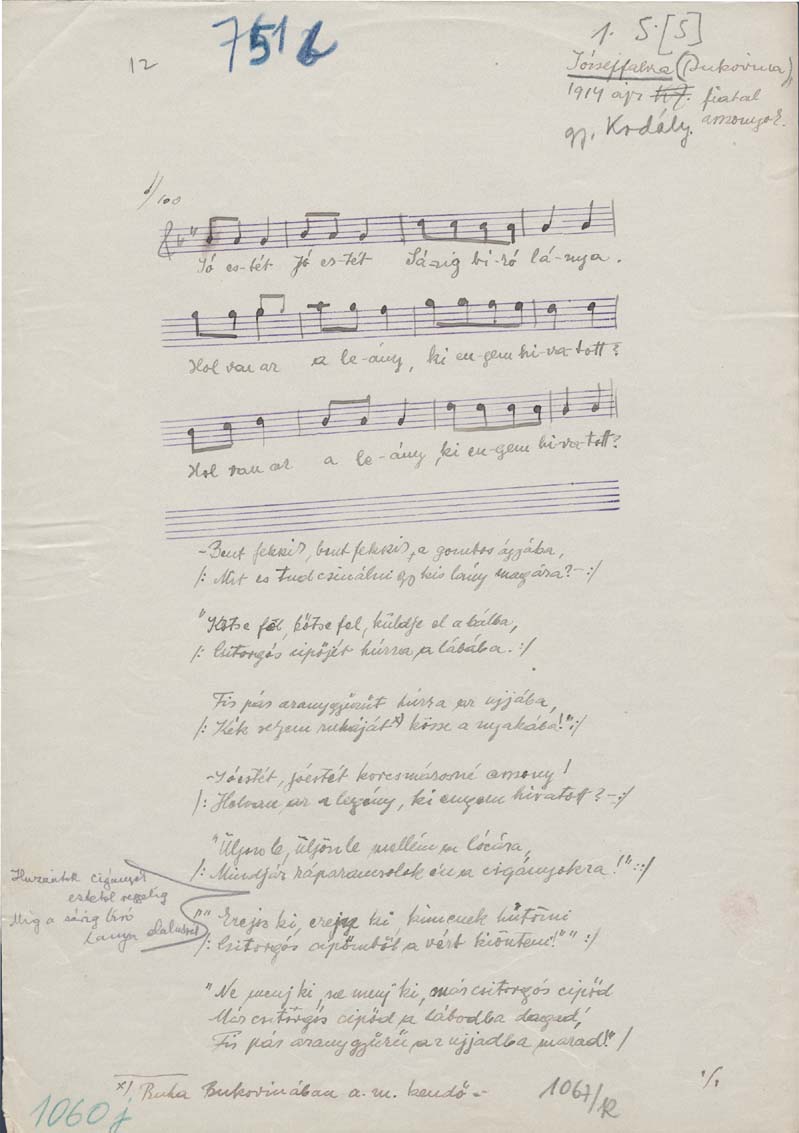 12
751 b
1. S. [S]
Józseffalva (Bukovina)
1914 ápr 17. fiatal
gy. Kodály. asszonyok.
1/100
Jó es-tét Jó es-tét Sá-rig bi-ró lá-nya.
Hol van az a le-ány, ki en-gem hi-va-tott?
Hol van az a le-ány, ki en-gem hi-va-tott?
-Bent fekszik, bent fekszik, a gombos ágyába,
/: Mit es tud csinálni egy kis lány magára? - :/
"Kötse fel, kötse fel, küldje el a bálba,
/: Csitorgós cipőjét húzza a lábába. :/
Fis pás aranygyűrűt húzza az ujjába,
/: Kék selyem ruháját x) kösse a nyakába!" :/
-Jóestét, jóestét korcsmárosné asszony!
/: Holvan az a legény, ki engem hivatott? - :/
"Üljön le, üljön le mellém a lócára,
/: Mindjár ráparancsolok én a cigányokra!" :/
Huzzátok cigányok
estétől reggelig
Mig a sárig biró
Lánya elaluszik
""Erejsz ki, erejsz ki kimenek hűtözni
/: Csitorgós cipőmből a vért kiönteni!"" :/
"Ne menj ki, ne menj ki, más csitorgós cipőd
Más csitorgós cipőd a lábodba dagad,
Fis pás aranygyűrű az ujjadba marad!" /
x) Ruha Bukovinában a. m. kendő -
1060 j
1067/12
./.